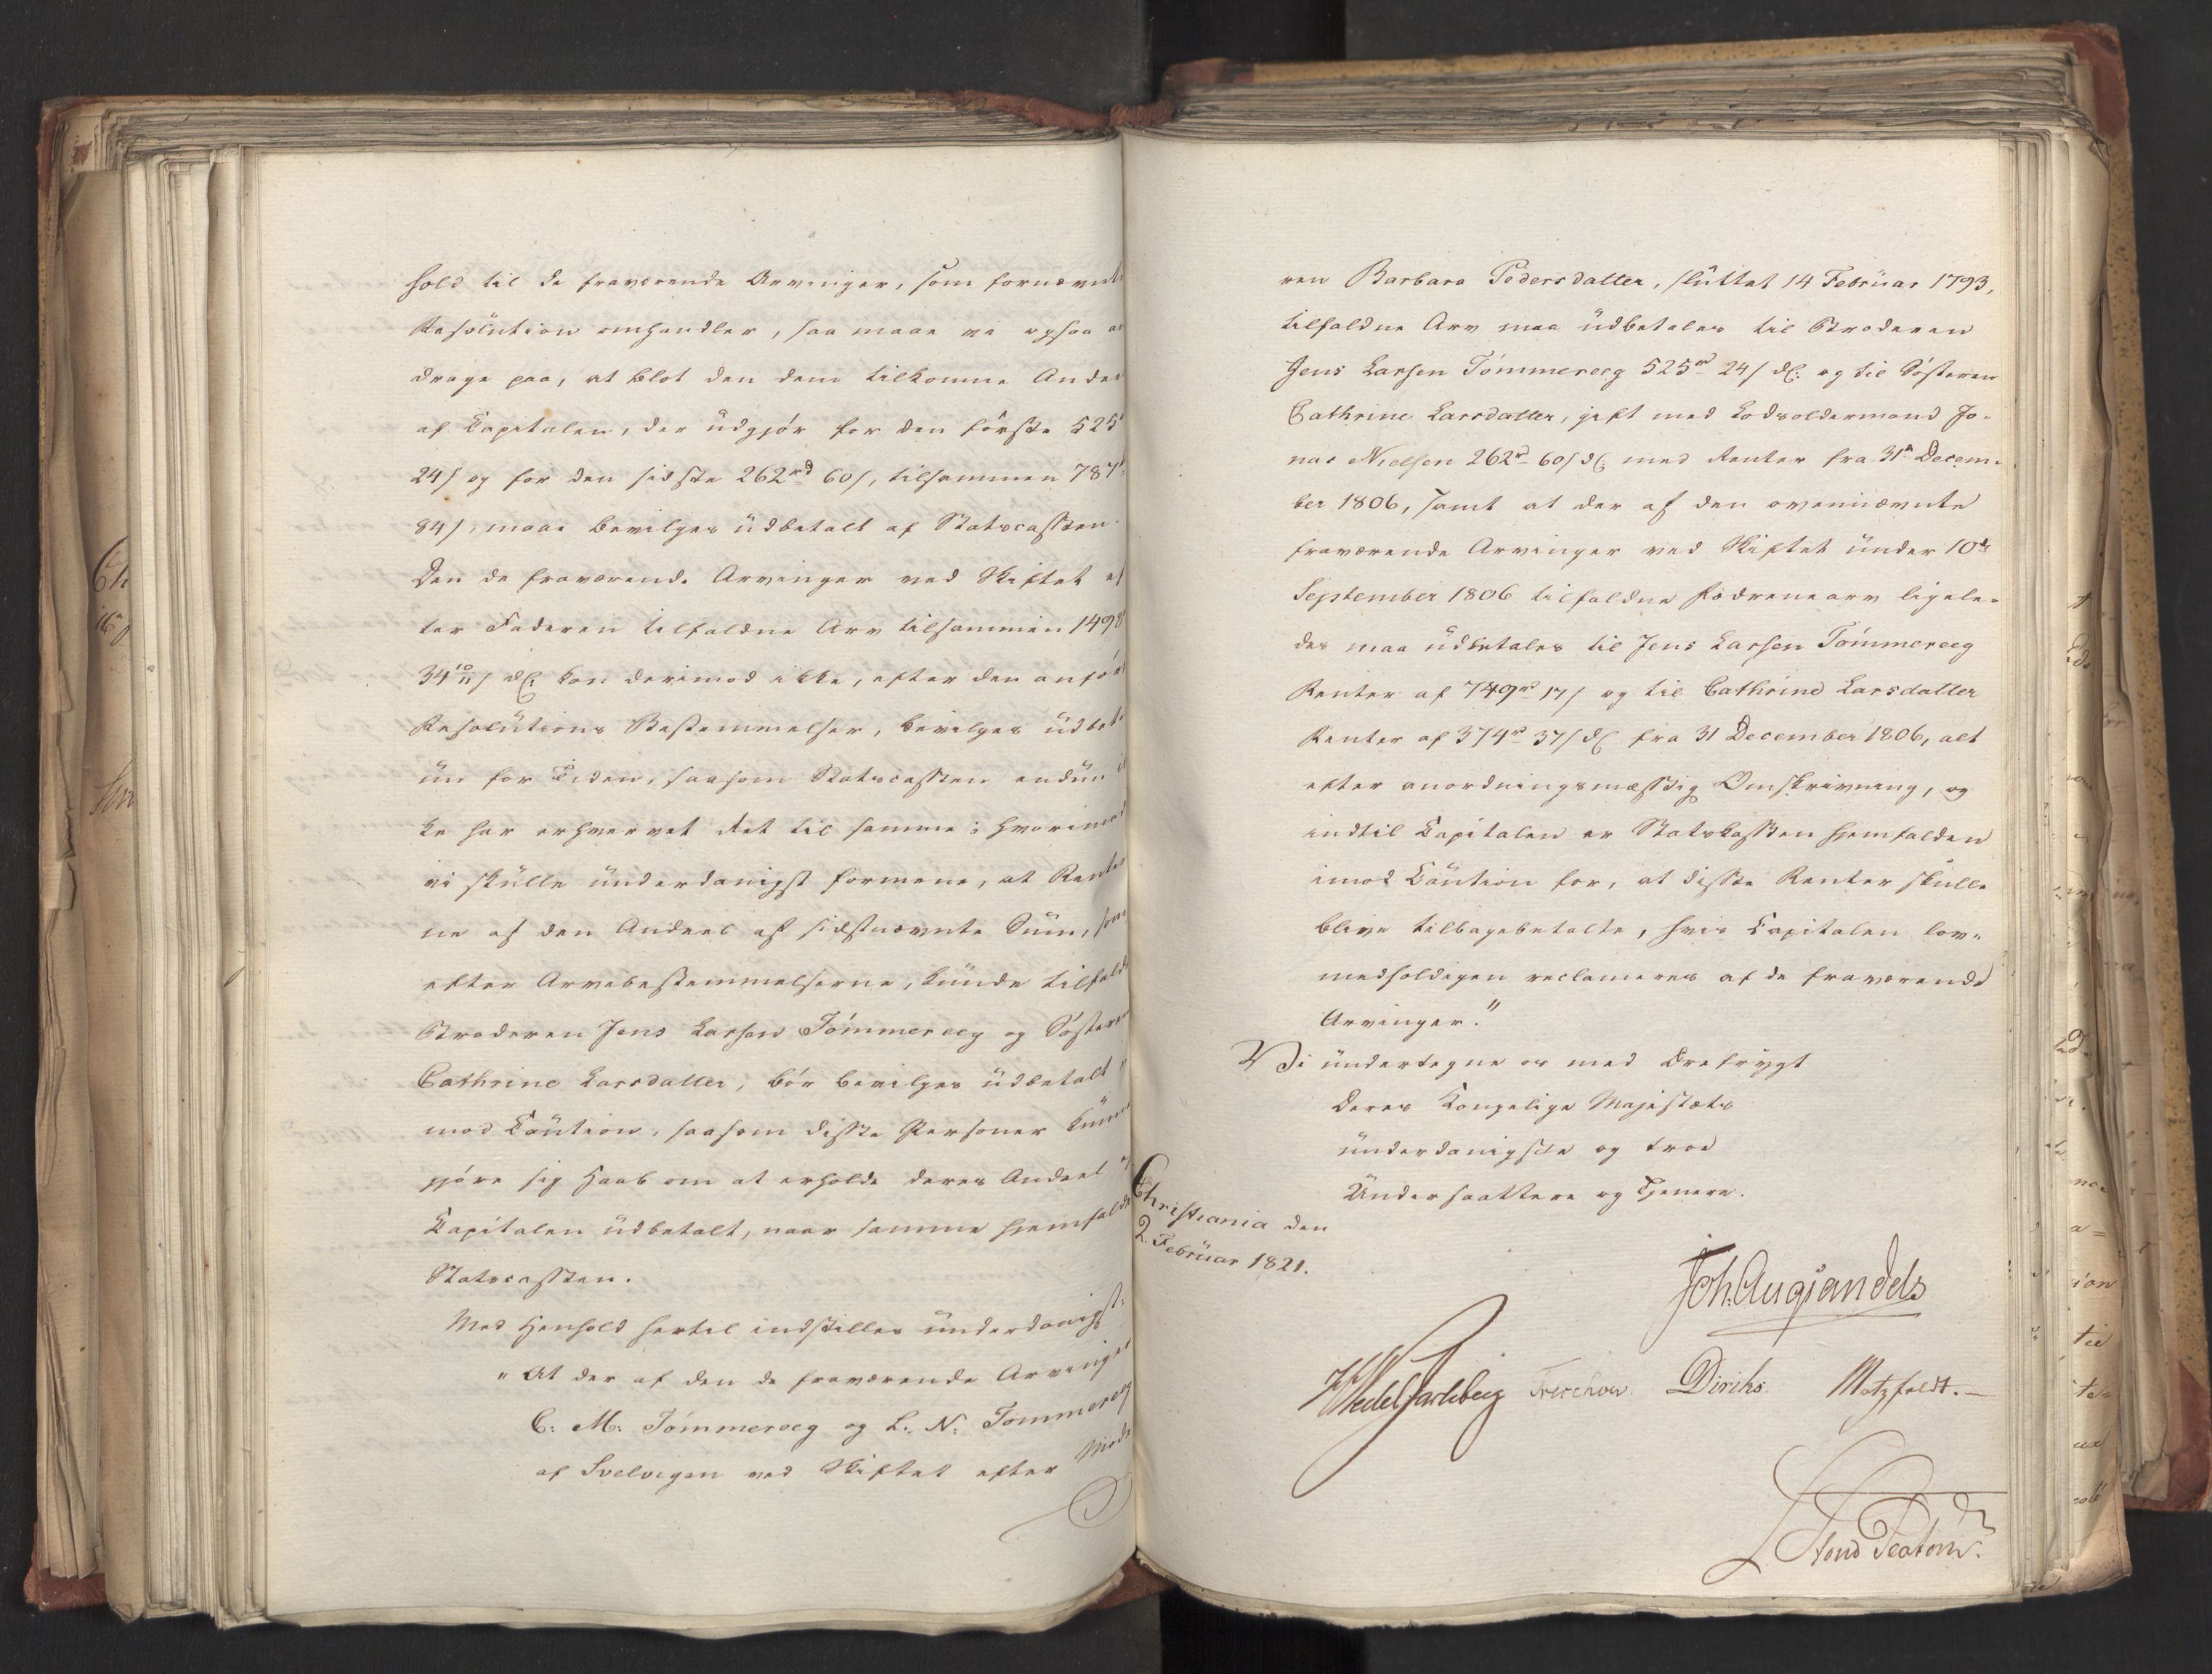 hold til de fraværende Arvinger, som fornævnte
Resolution omhandler, saa maae vi ogsaa an
drage paa, at blot den dem tilkomne Andeel
af Capitalen, der udgjør for den første 525
24 s og for den sidste 262 rd 60 s, tilsammen 787
84 s, maae bevilges udbetalt af Statscassen.
Den de fraværende Arvinger ved Skiftet ef
ter Faderen tilfaldne Arv tilsammen 1498
34 10/11 s d.C. kan derimod ikke, efter den anfør
Resolutions Bestemmelser, bevilges udbet
nu for Tiden, saasom Statscassen endnu ik
ke har erhvervet Ret til samme; hvorimod
vi skulle underdanigst formene, at Renter
ne af den Andeel af sidstnævnte Sum, som
efter Arvebestemmelserne, kunde tilfalde
Broderen Jens Larsen Tömmeraeg og Søsteren
Cathrine Larsdatter, bör bevilges udbetalt
mod Caution, saasom disse Personer kunne
gjøre sig Haab om at erholde deres Andeel
Capitalen udbetalt, naar samme hjemfalde
Statscassen.
Med Henhold hertil indstilles underdanigst:
"At der af den de fraværende Arvinger
C: M: Tömmeraeg og L. N: Tömmeraeg
af Svelvigen ved Skiftet efter Mode
ren Barbara Pedersdatter, sluttet 14 Februar 1793,
tilfaldne Arv maa udbetales til Broderen
Jens Larsen Tömmeraeg 525 rd 24 s d.C: og til Søsteren
Cathrine Larsdatter, gift med Lodsoldermand Jo-
nas Nielsen 262 rd 60 s d.C: med Renter fra 31te Decem-
ber 1806, samt at der af den ovennævnte
fraværende Arvinger ved Skiftet under 10de
September 1806 tilfaldne Fædrenearv ligele-
des maa udbetales til Jens Larsen Tömmeraeg
Renter af 749 rd 17 s og til Cathrine Larsdatter
Renter af 374 rd 37 s d.C. fra 31 December 1806, alt
efter anordningsmæssig Omskrivning, og
indtil Capitalen er Statskassen hjemfalden
imod Caution for, at disse Renter skulle
blive tilbagebetalte, hvis Capitalen lov-
medholdigen reclameres af de fraværende
Arvinger."
Vi undertegne os med Ærefrygt
Deres Kongelige Majestæts
underdanigste og troe
Undersaattere og Tjenere.
Christiania den
2. Februar 1821.
Joh. Aug. Sandels
HWedelJarlsberg Treschow. Diriks. Motzfeldt.